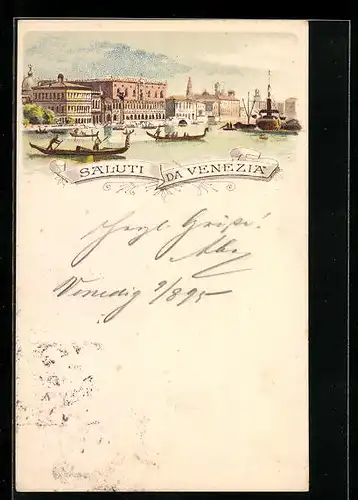 SALUTI DA VENEZIA
Herzl. Grüße!
Venedig 9/8 95